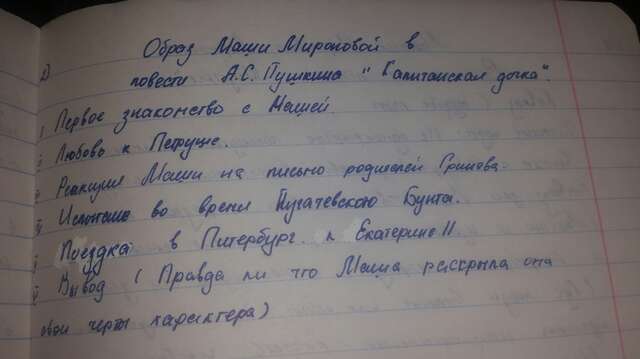 2) Образ Маши Мироновой в
повести А.С. Пушкина "Капитанская дочка".
Первое знакомство с Машей.
Любовь к Петруше.
Реакция Маши на письмо родителей Гринева.
во время Пугачевского Бунта.
Поездка в Питербург к Екатерине II
Вывод (Правда ли что Маша раскрыла она
свои черты характера)